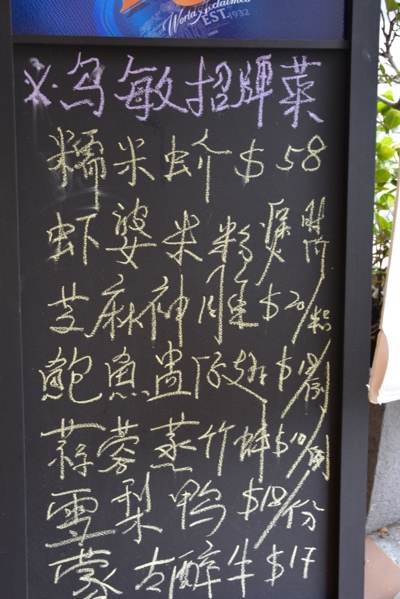 World Acclaimed
EST. 1932
※乌敏招牌菜
糯米虾 $58
虾婆米粉 时价
芝麻神 $20/粒
鲍鱼 翅 $18/剂
蒜蓉蒸竹蚌 $10/剂
雪梨鸭 $18/份
蒙古醉牛 $17